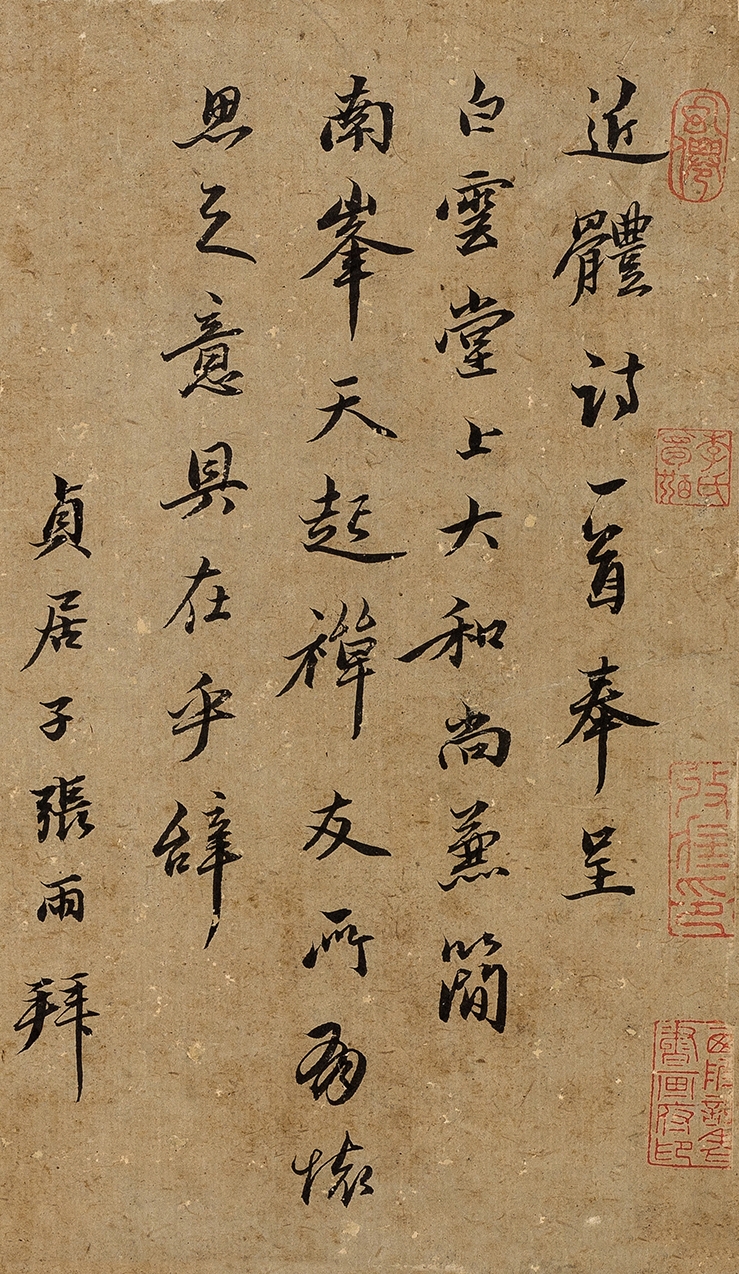 近體詩一首奉呈
白雲堂上大和尚兼簡
南峯天起禪友所為懷
思之意具在乎辝
貞居子張雨拜